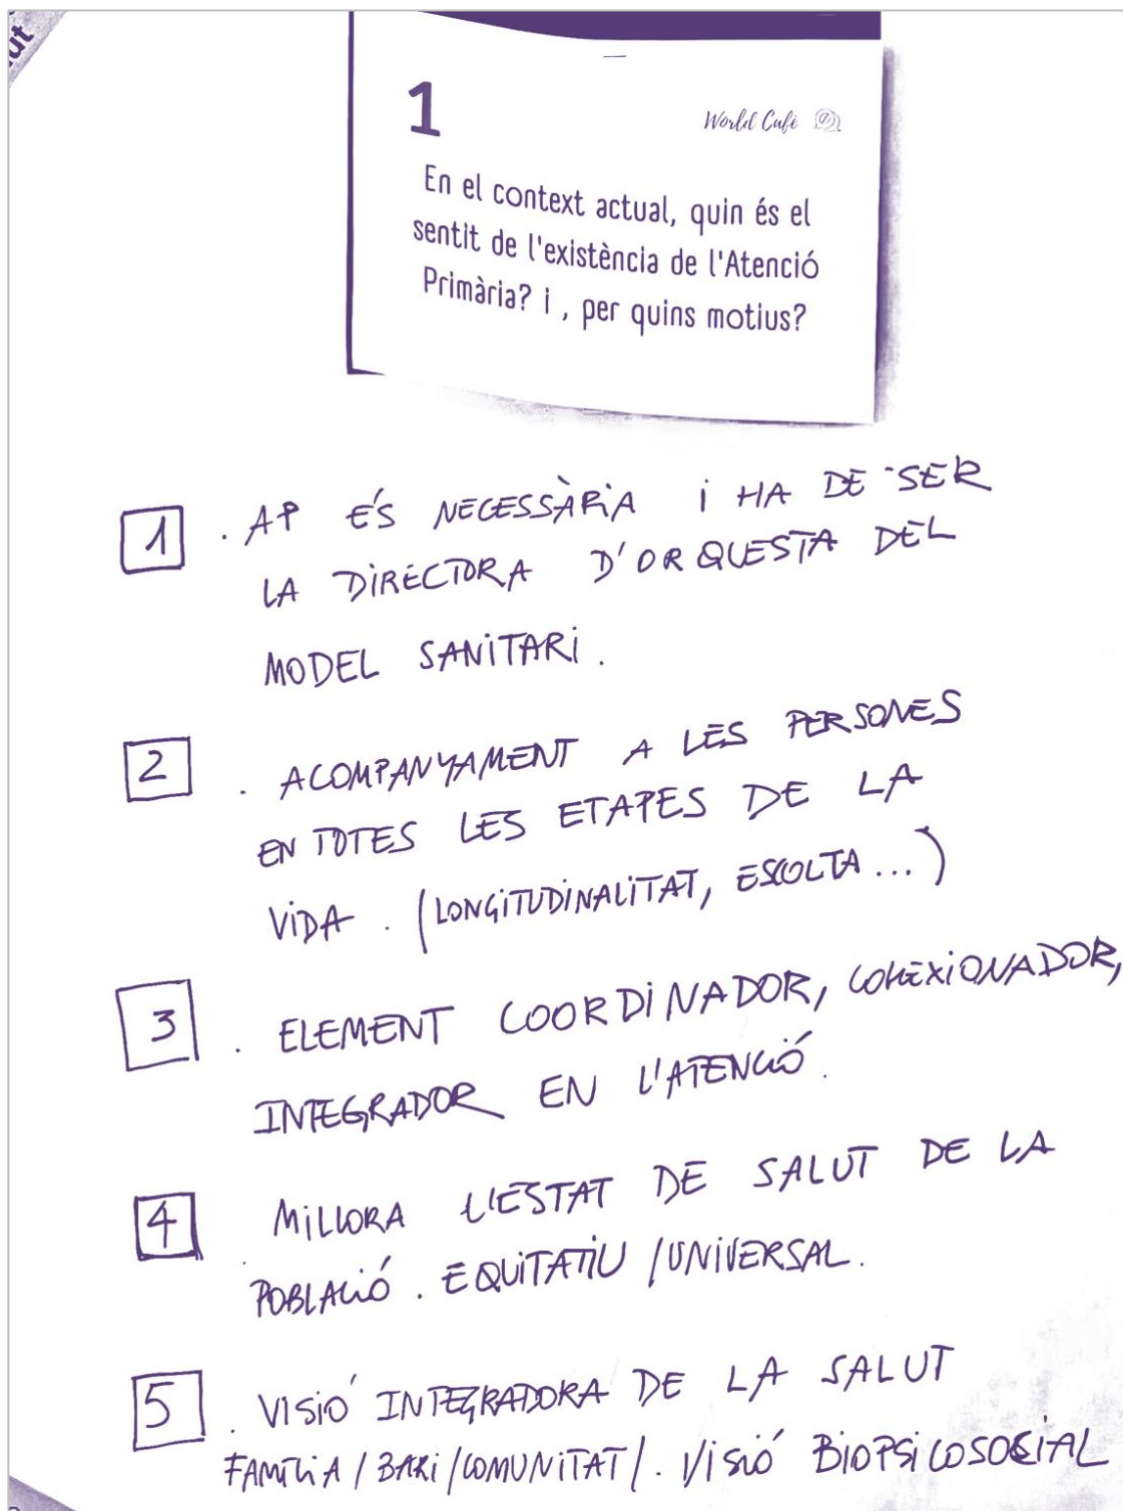 ut
1
World Cafè
En el context actual, quin és el
sentit de l'existència de l'Atenció
Primària? i , per quins motius?
1 . AP ÉS NECESSÀRIA i HA DE SER
LA DIRECTORA D'ORQUESTA DEL
MODEL SANITARI.
2 . ACOMPANYAMENT A LES PERSONES
EN TOTES LES ETAPES DE LA
VIDA . (LONGITUDINALITAT, ESCOLTA...)
3 . ELEMENT COORDINADOR, COHEXIONADOR,
INTEGRADOR EN L'ATENCIÓ.
4 . MILLORA L'ESTAT DE SALUT DE LA
POBLACIÓ . EQUITATIU /UNIVERSAL.
5 . VISIÓ INTEGRADORA DE LA SALUT
FAMÍLIA / BARI /COMUNITAT/. VISIÓ BIOPSICOSOCIAL